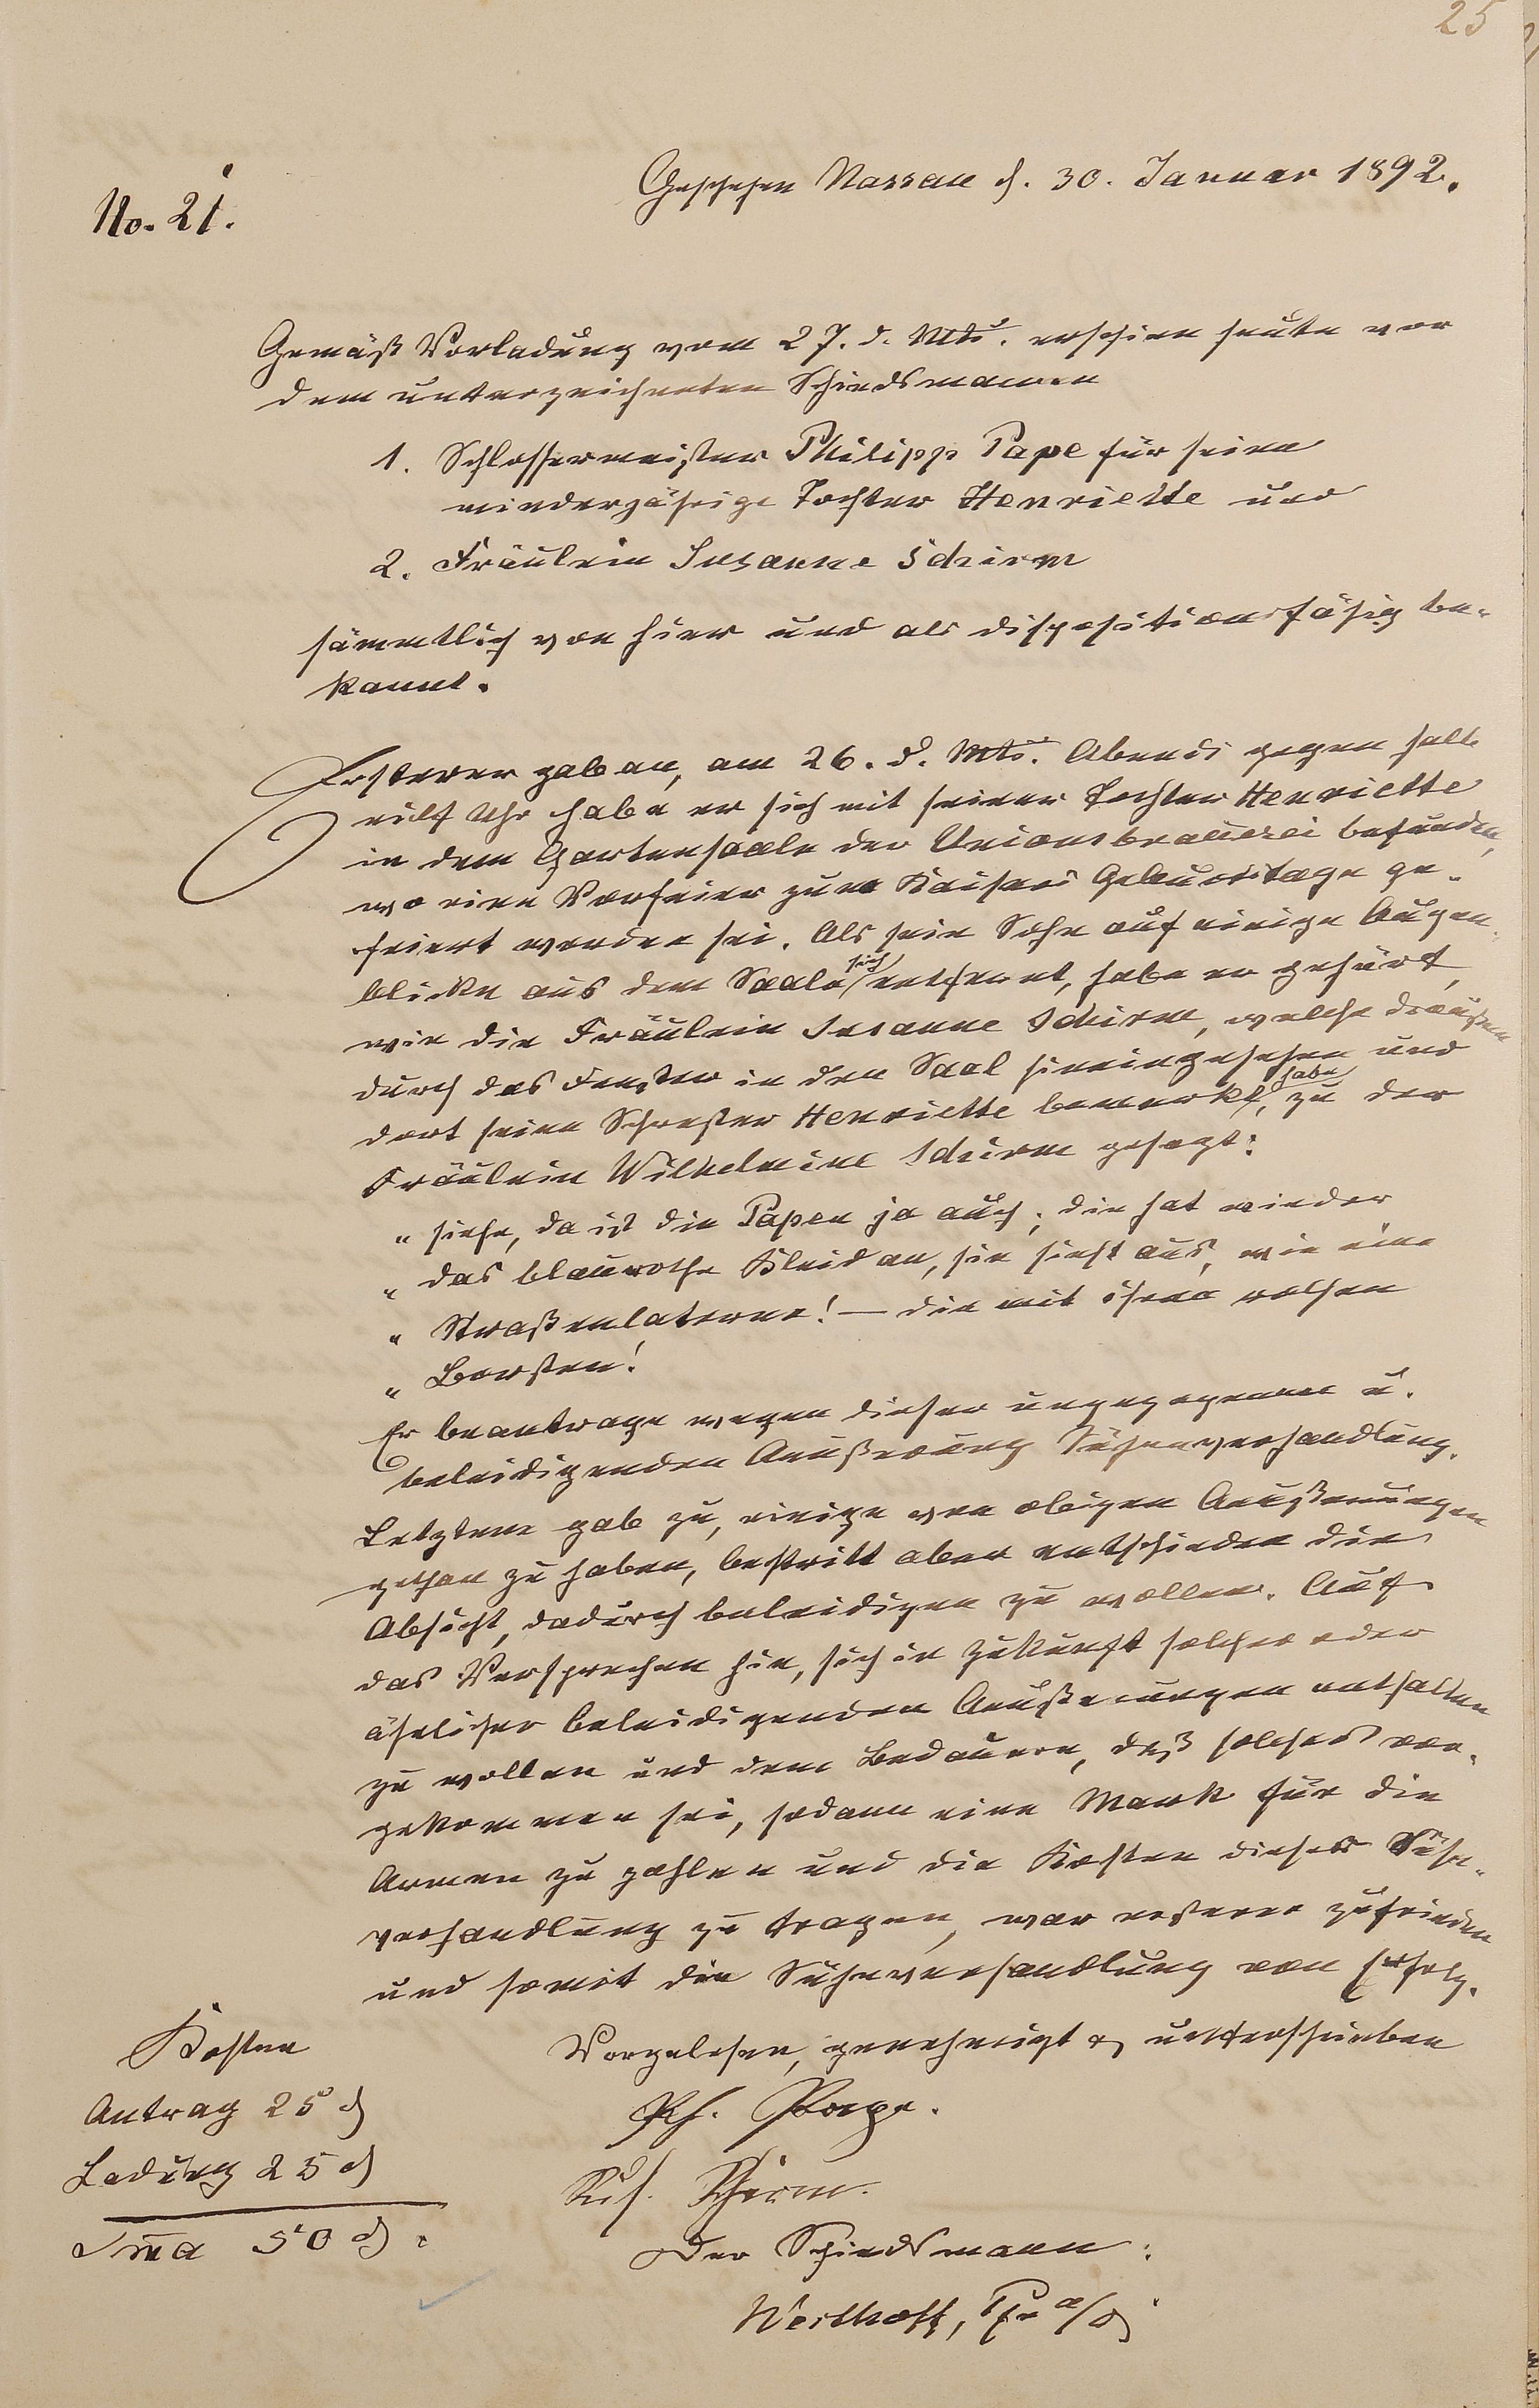 25
No. 21.
Geschehen Nassau d. 30. Januar 1892.
Gemäß Vorladung vom 27. d. Mts. erschien heute vor
dem unterzeichneten Schiedsmannen
1. Schlossermeister Philipp Pape für seine
minderjährige Tochter Henriette und
2. Fräulein Susanne Schirm
sämmtlich von hier und als dispositionsfähig be-
kannt.
Ersterer gab an, am 26. d. Mts. Abends gegen halb
eilf Uhr habe er sich mit seiner Tochter Henriette
in dem Gartensaale der Unionsbrauerei befunden,
wo eine Vorfeier zum Kaisers Geburtstage ge-
feiert worden sei. Als sein Sohn auf einige Augen-
blicke aus dem Saale sich entfernt, habe er gehört,
wie die Fräulein Susanne Schirm, welche draußen
durch das Fenster in den Saal hineingesehen und
dort seine Schwester Henriette bemerkt habe, zu der
Fräulein Wilhelmine Schirm gesagt:
„ siehe, da ist die Papen ja auch; die hat wieder
„ das blaurothe Kleid an, sie sieht aus, wie eine
„ Straßenlaterne! — die mit ihren rothen
„ Borsten!
Er beantrage wegen dieser ungezogenen u.
beleidigenden Aeußerung Sühneverhandlung.
Letztere gab zu, einige von obigen Aeußerungen
gethan zu haben, bestritt aber entschieden die
Absicht, dadurch beleidigen zu wollen. Auf
das Versprechen hin, sich in Zukunft solcher oder
ähnlicher beleidigenden Aeußerungen enthalten
zu wollen und dem Bedauern, daß solches vor-
gekommen sei, sodann eine Mark für die
Armen zu zahlen und die Kosten dieser Sühn-
verhandlung zu tragen, war ersterer zufrieden
und somit die Sühneverhandlung von Erfolg.
Vorgelesen, genehmigt & unterschrieben
Ph. Pape.
Sus. Schirm.
Der Schiedsmann:
Westhoff,
Kosten
Antrag 25 ₰
Ladung 25 ₰
Sma 50 ₰.